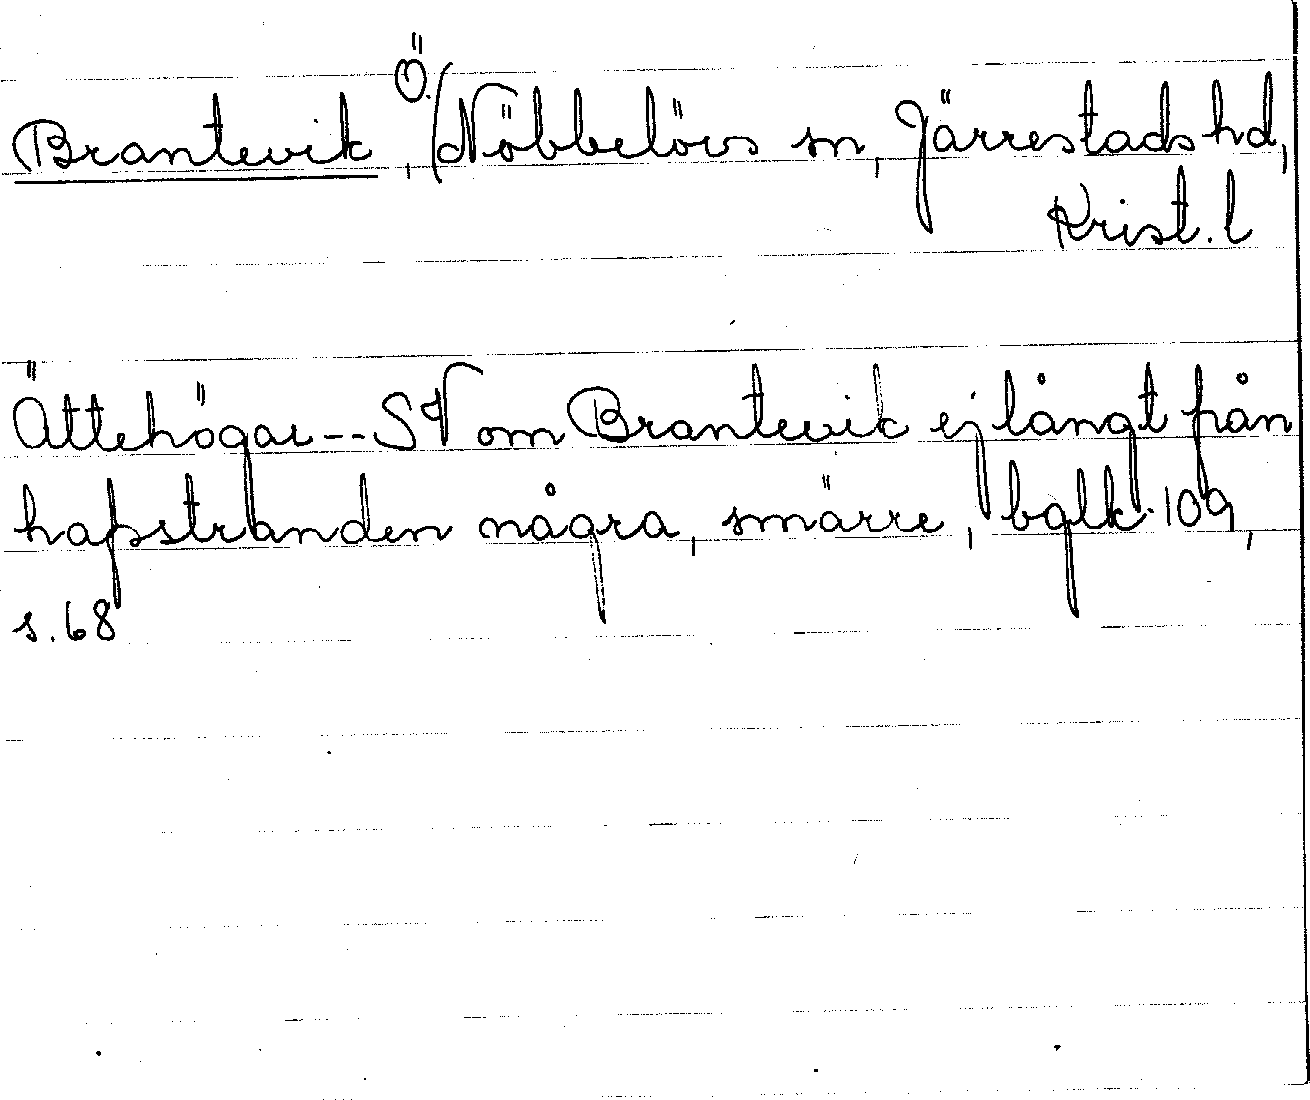 Brantevik, Ö. Nöbbelövs sn, Järrestads hd,
Krist. l
Ättehögar -- SV om Brantevik ej långt från
hafstranden några, smärre, bglk. 109,
s. 68